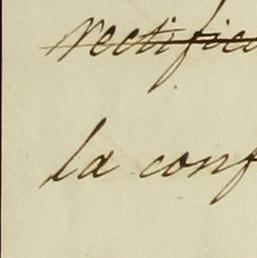 rectific
la conf